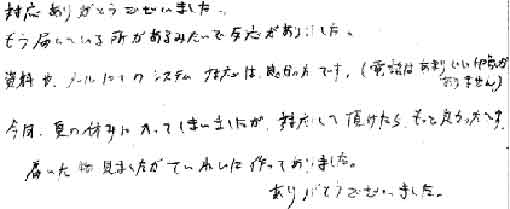 対応ありがとうございました。
もう届いている所があるみたいで反応がありました。
資料や、メールにての システム 対応は 良い方です。(電話はあまりいい印象が
ありません)
今回、夏の休みに入ってしまいましたが、対応して頂けたら もっと良かったです。
届いた物 見ましたがていねいに作ってありました。
ありがとうございました。